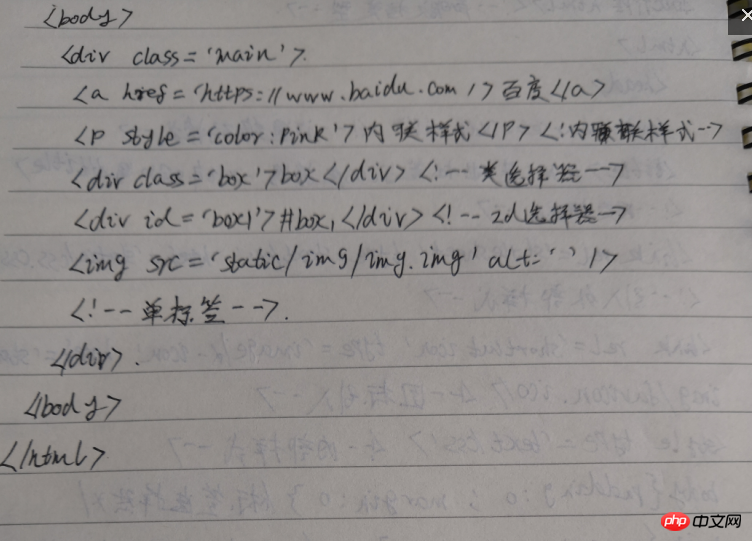 <body>
<div class='main'>.
<a href='https://www.baidu.com'>百度</a>
<p style='color:pink'>内联样式</p> <!内联样式-->
<div class='box'>box</div> <!-- 类选择器-->
<div id='box1'>#box1</div> <!-- id选择器-->
<img src='static/img/img.img' alt='' />
<!--单标签-->.
</div>.
</body>
</html>
php 中文网